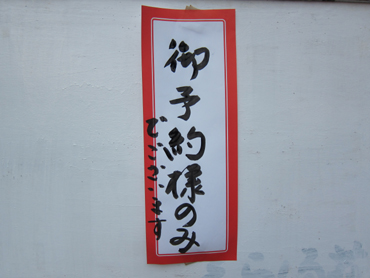 御予約様のみ
でございます